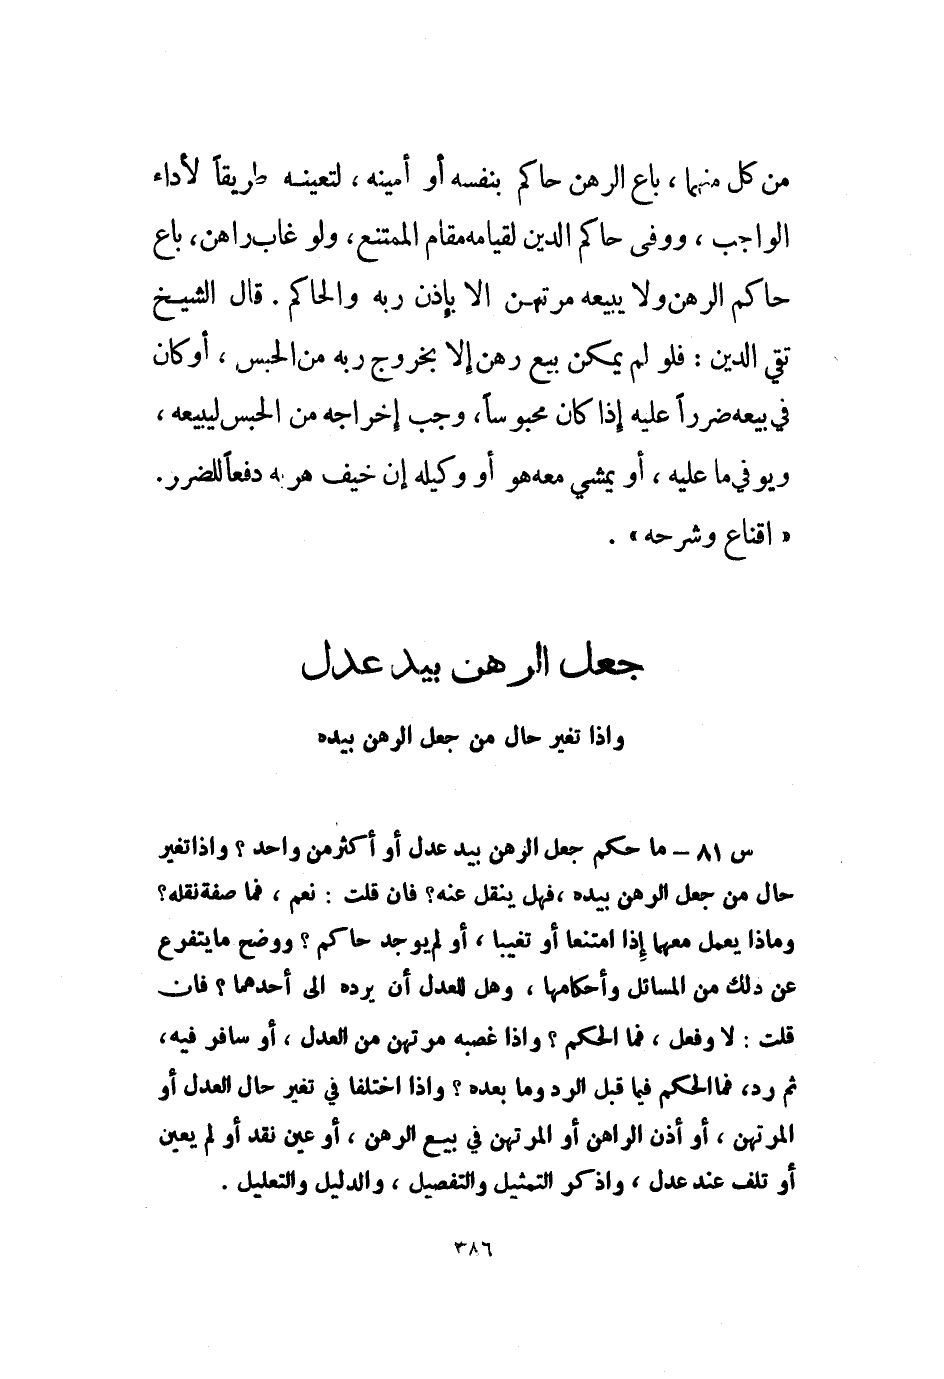 من كل منهما ، باع الرهن حاكم بنفسه أو أمينه ، لتعينه طريقاً لأداء
الواجب ، ووفى حاكم الدين لقيامه مقام الممتنع ، ولو غاب راهن ، باع
حاكم الرهن ولا يبيعه مرتهن الا بإذن ربه والحاكم . قال الشيخ
تقي الدين : فلو لم يمكن بيع رهن إلا بخروج ربه من الحبس ، أو كان
في بيعه ضرراً عليه إذا كان محبوساً ، وجب إخراجه من الحبس ليبيعه ،
ويوفي ما عليه ، أو يمشي معه هو أو وكيله إن خيف هربه دفعاً للضرر .
« اقناع وشرحه » .
جعل الرهن بيد عدل
واذا تغير حال من جعل الرهن بيده
س ٨١ – ما حكم جعل الرهن بيد عدل أو أكثر من واحد ؟ واذا تغير
حال من جعل الرهن بيده ، فهل ينقل عنه ؟ فان قلت : نعم ، فما صفة نقله ؟
وماذا يعمل معهما إذا امتنعا أو تغيبا ، أو لم يوجد حاكم ؟ ووضح ما يتفرع
عن ذلك من المسائل وأحكامها ، وهل للعدل أن يرده الى أحدهما ؟ فان
قلت : لا وفعل ، فما الحكم ؟ واذا غصبه مرتهن من العدل ، أو سافر فيه ،
ثم رد ، فما الحكم فيما قبل الرد وما بعده ؟ واذا اختلفا في تغير حال العدل أو
المرتهن ، أو أذن الراهن أو المرتهن في بيع الرهن ، أو عين نقد أو لم يعين
أو تلف عند عدل ، واذكر التمثيل والتفصيل ، والدليل والتعليل .
٣٨٦